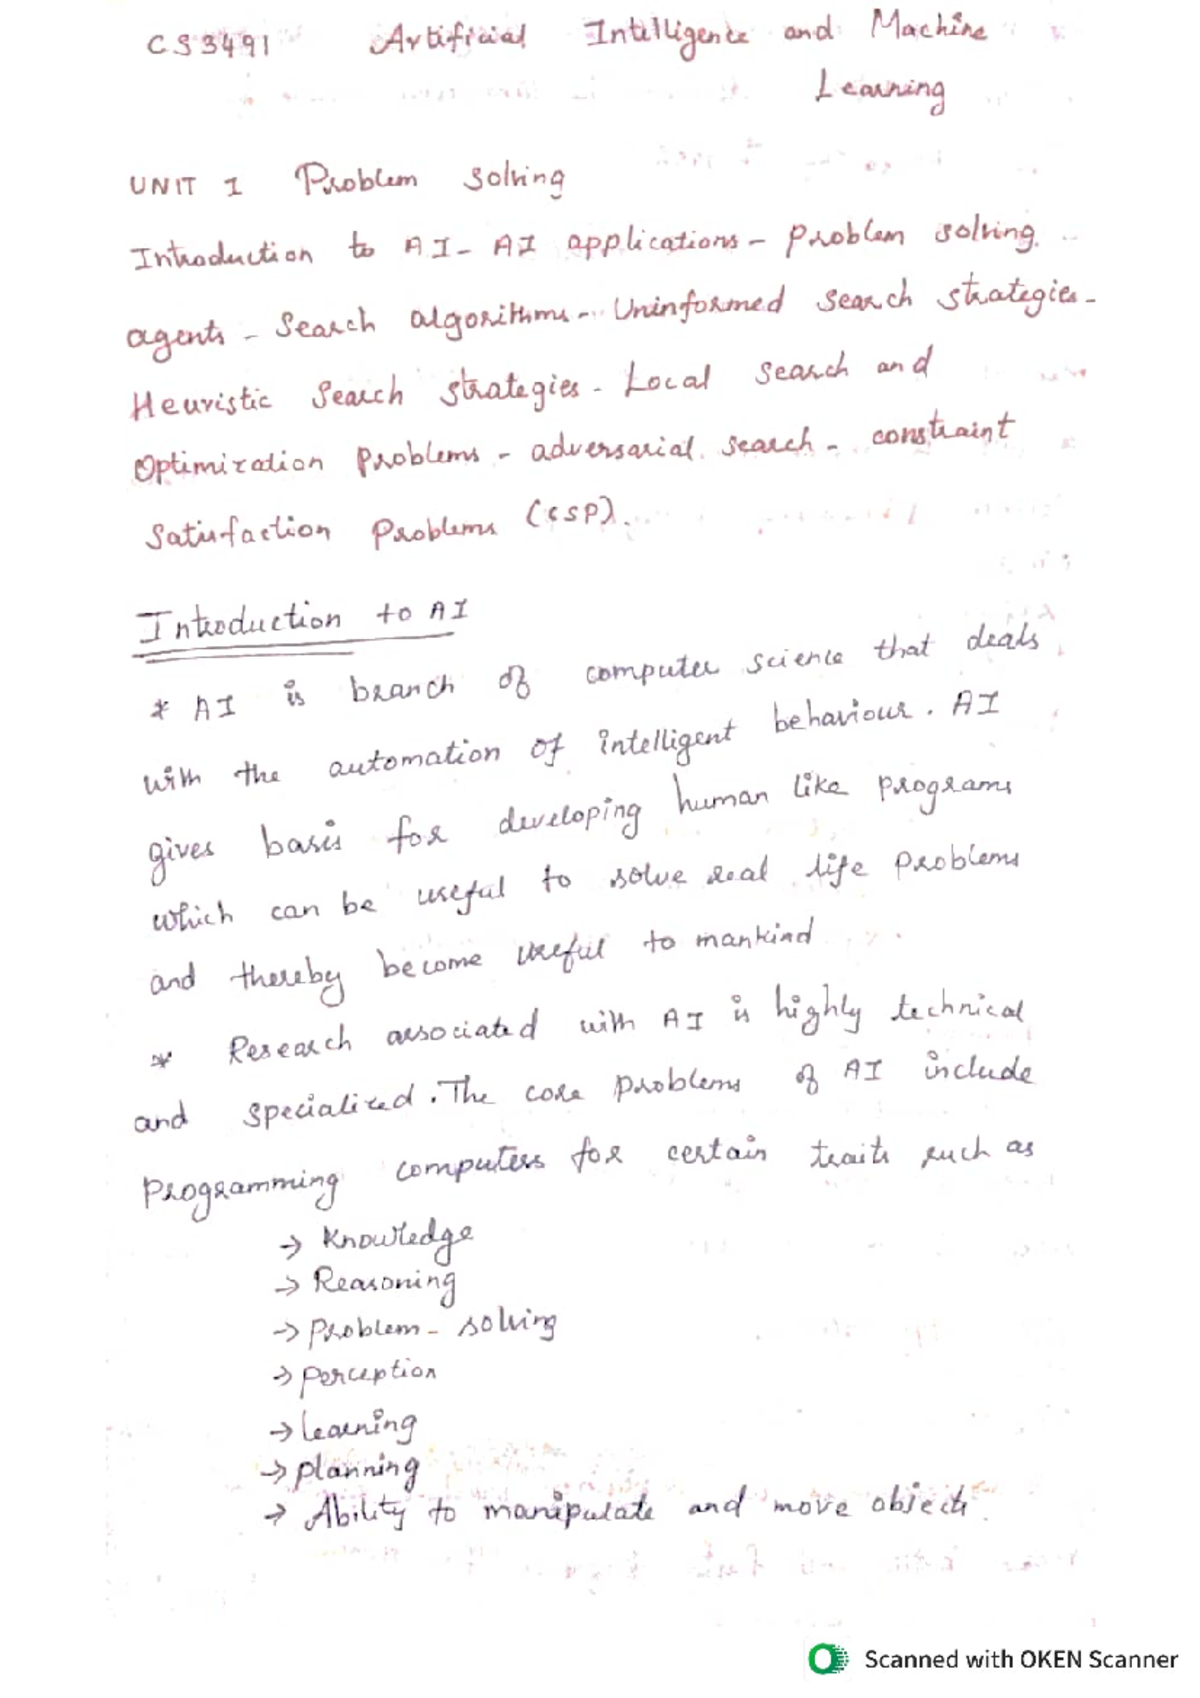 CS3491 Artificial Intelligence and Machine
Learning
UNIT I Problem solving
Introduction to AI - AI applications - Problem solving
agents - Search algorithms - Uninformed search strategies -
Heuristic Search strategies - Local search and
Optimization Problems - adversarial search - constraint
Satisfaction Problems (CSP).
Introduction to AI
* AI is branch of computer science that deals
with the automation of intelligent behaviour. AI
gives basis for developing human like programs
which can be useful to solve real life problems
and thereby become useful to mankind
* Research associated with AI is highly technical
and specialized. The core problems of AI include
Programming computers for certain traits such as
→ Knowledge
→ Reasoning
→ Problem - solving
→ Perception
→ learning
→ planning
→ Ability to manipulate and move objects.
Scanned with OKEN Scanner